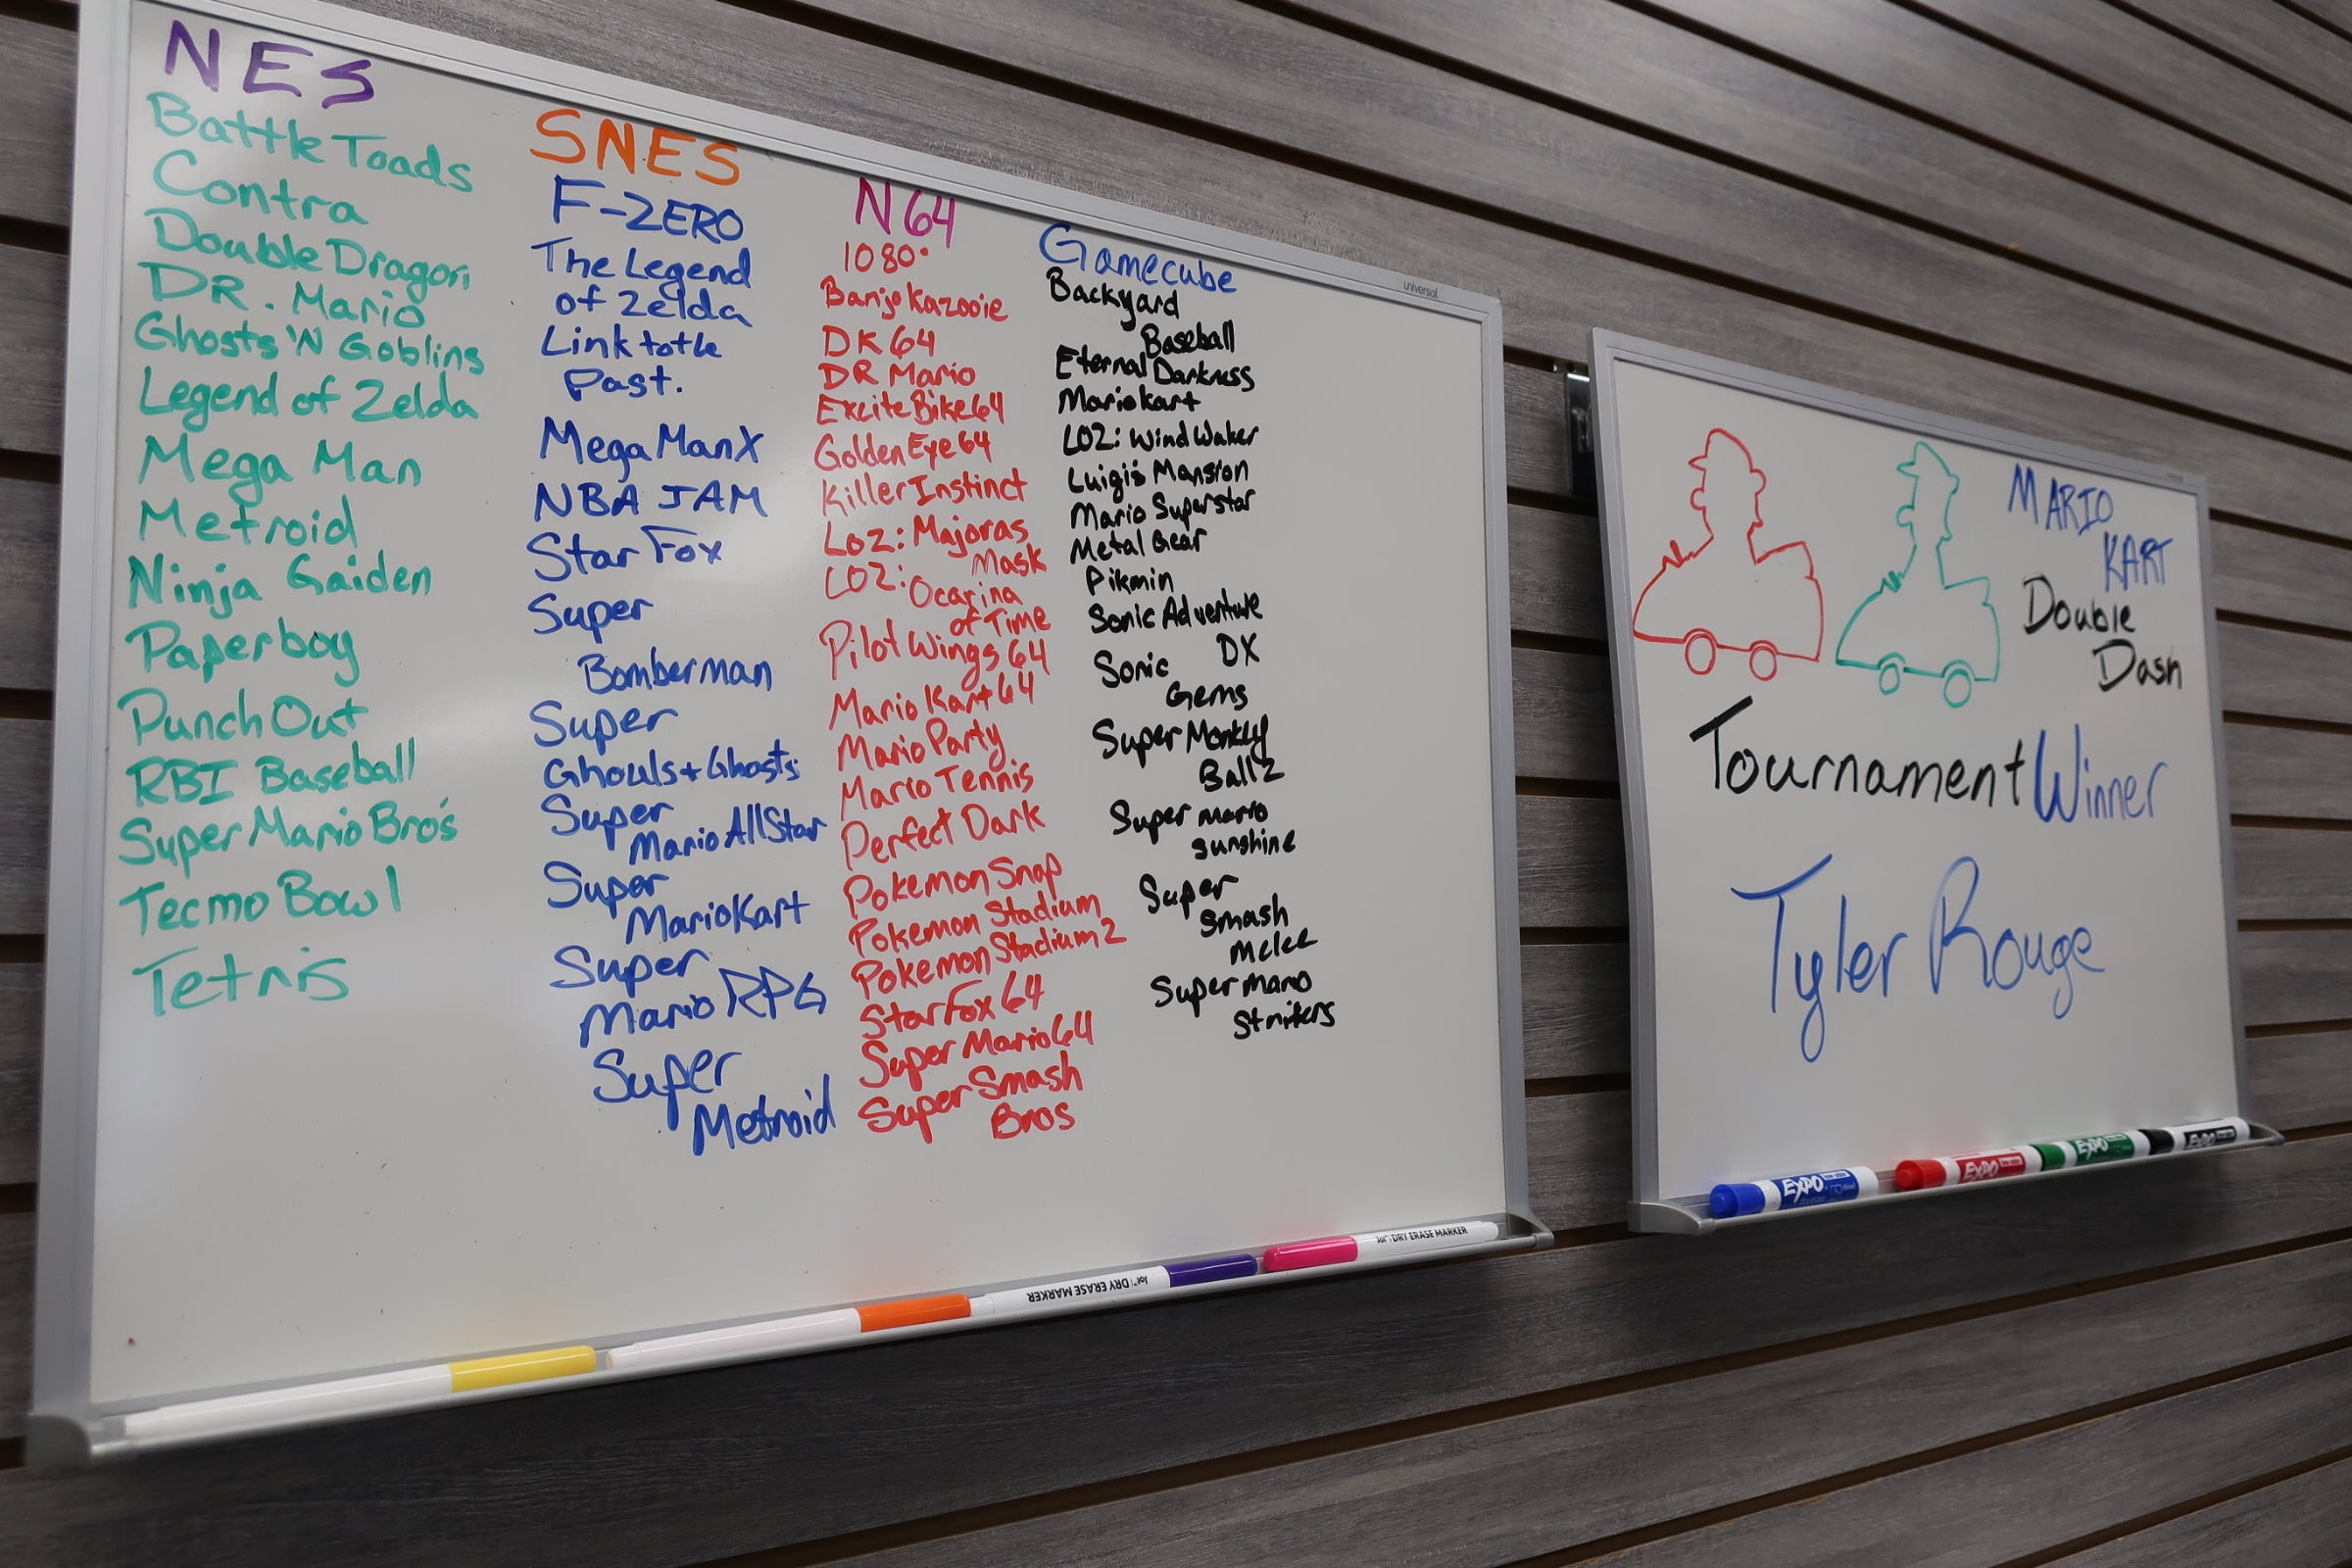 NES
Battle Toads
Contra
Double Dragon
DR. Mario
Ghosts 'N Goblins
Legend of Zelda
Mega Man
Metroid
Ninja Gaiden
Paperboy
Punch Out
RBI Baseball
Super Mario Bro's
Tecmo Bowl
Tetris
SNES
F-ZERO
The Legend
of Zelda
Link to the
Past.
Mega Man X
NBA JAM
Star Fox
Super
Bomberman
Super
Ghouls + Ghosts
Super
Mario All Star
Super
Mario Kart
Super
Mario RPG
Super
Metroid
N64
1080°
Banjo Kazooie
DK 64
DR Mario
Excite Bike 64
Golden Eye 64
Killer Instinct
LOZ: Majoras
Mask
LOZ: Ocarina
of Time
Pilot Wings 64
Mario Kart 64
Mario Party
Mario Tennis
Perfect Dark
Pokemon Snap
Pokemon Stadium
Pokemon Stadium 2
Star Fox 64
Super Mario 64
Super Smash
Bros
Gamecube
Backyard
Baseball
Eternal Darkness
Mario Kart
LOZ: Wind Waker
Luigi's Mansion
Mario Superstar
Metal Gear
Pikmin
Sonic Adventure
DX
Sonic
Gems
Super Monkey
Ball 2
Super Mario
Sunshine
Super
Smash
Melee
Super Mario
Strikers
universal
DRY ERASE MARKER
DRY ERASE MARKER
MARIO
KART
Double
Dash
Tournament Winner
Tyler Rouge
EXPO
EXPO
EXPO
EXPO